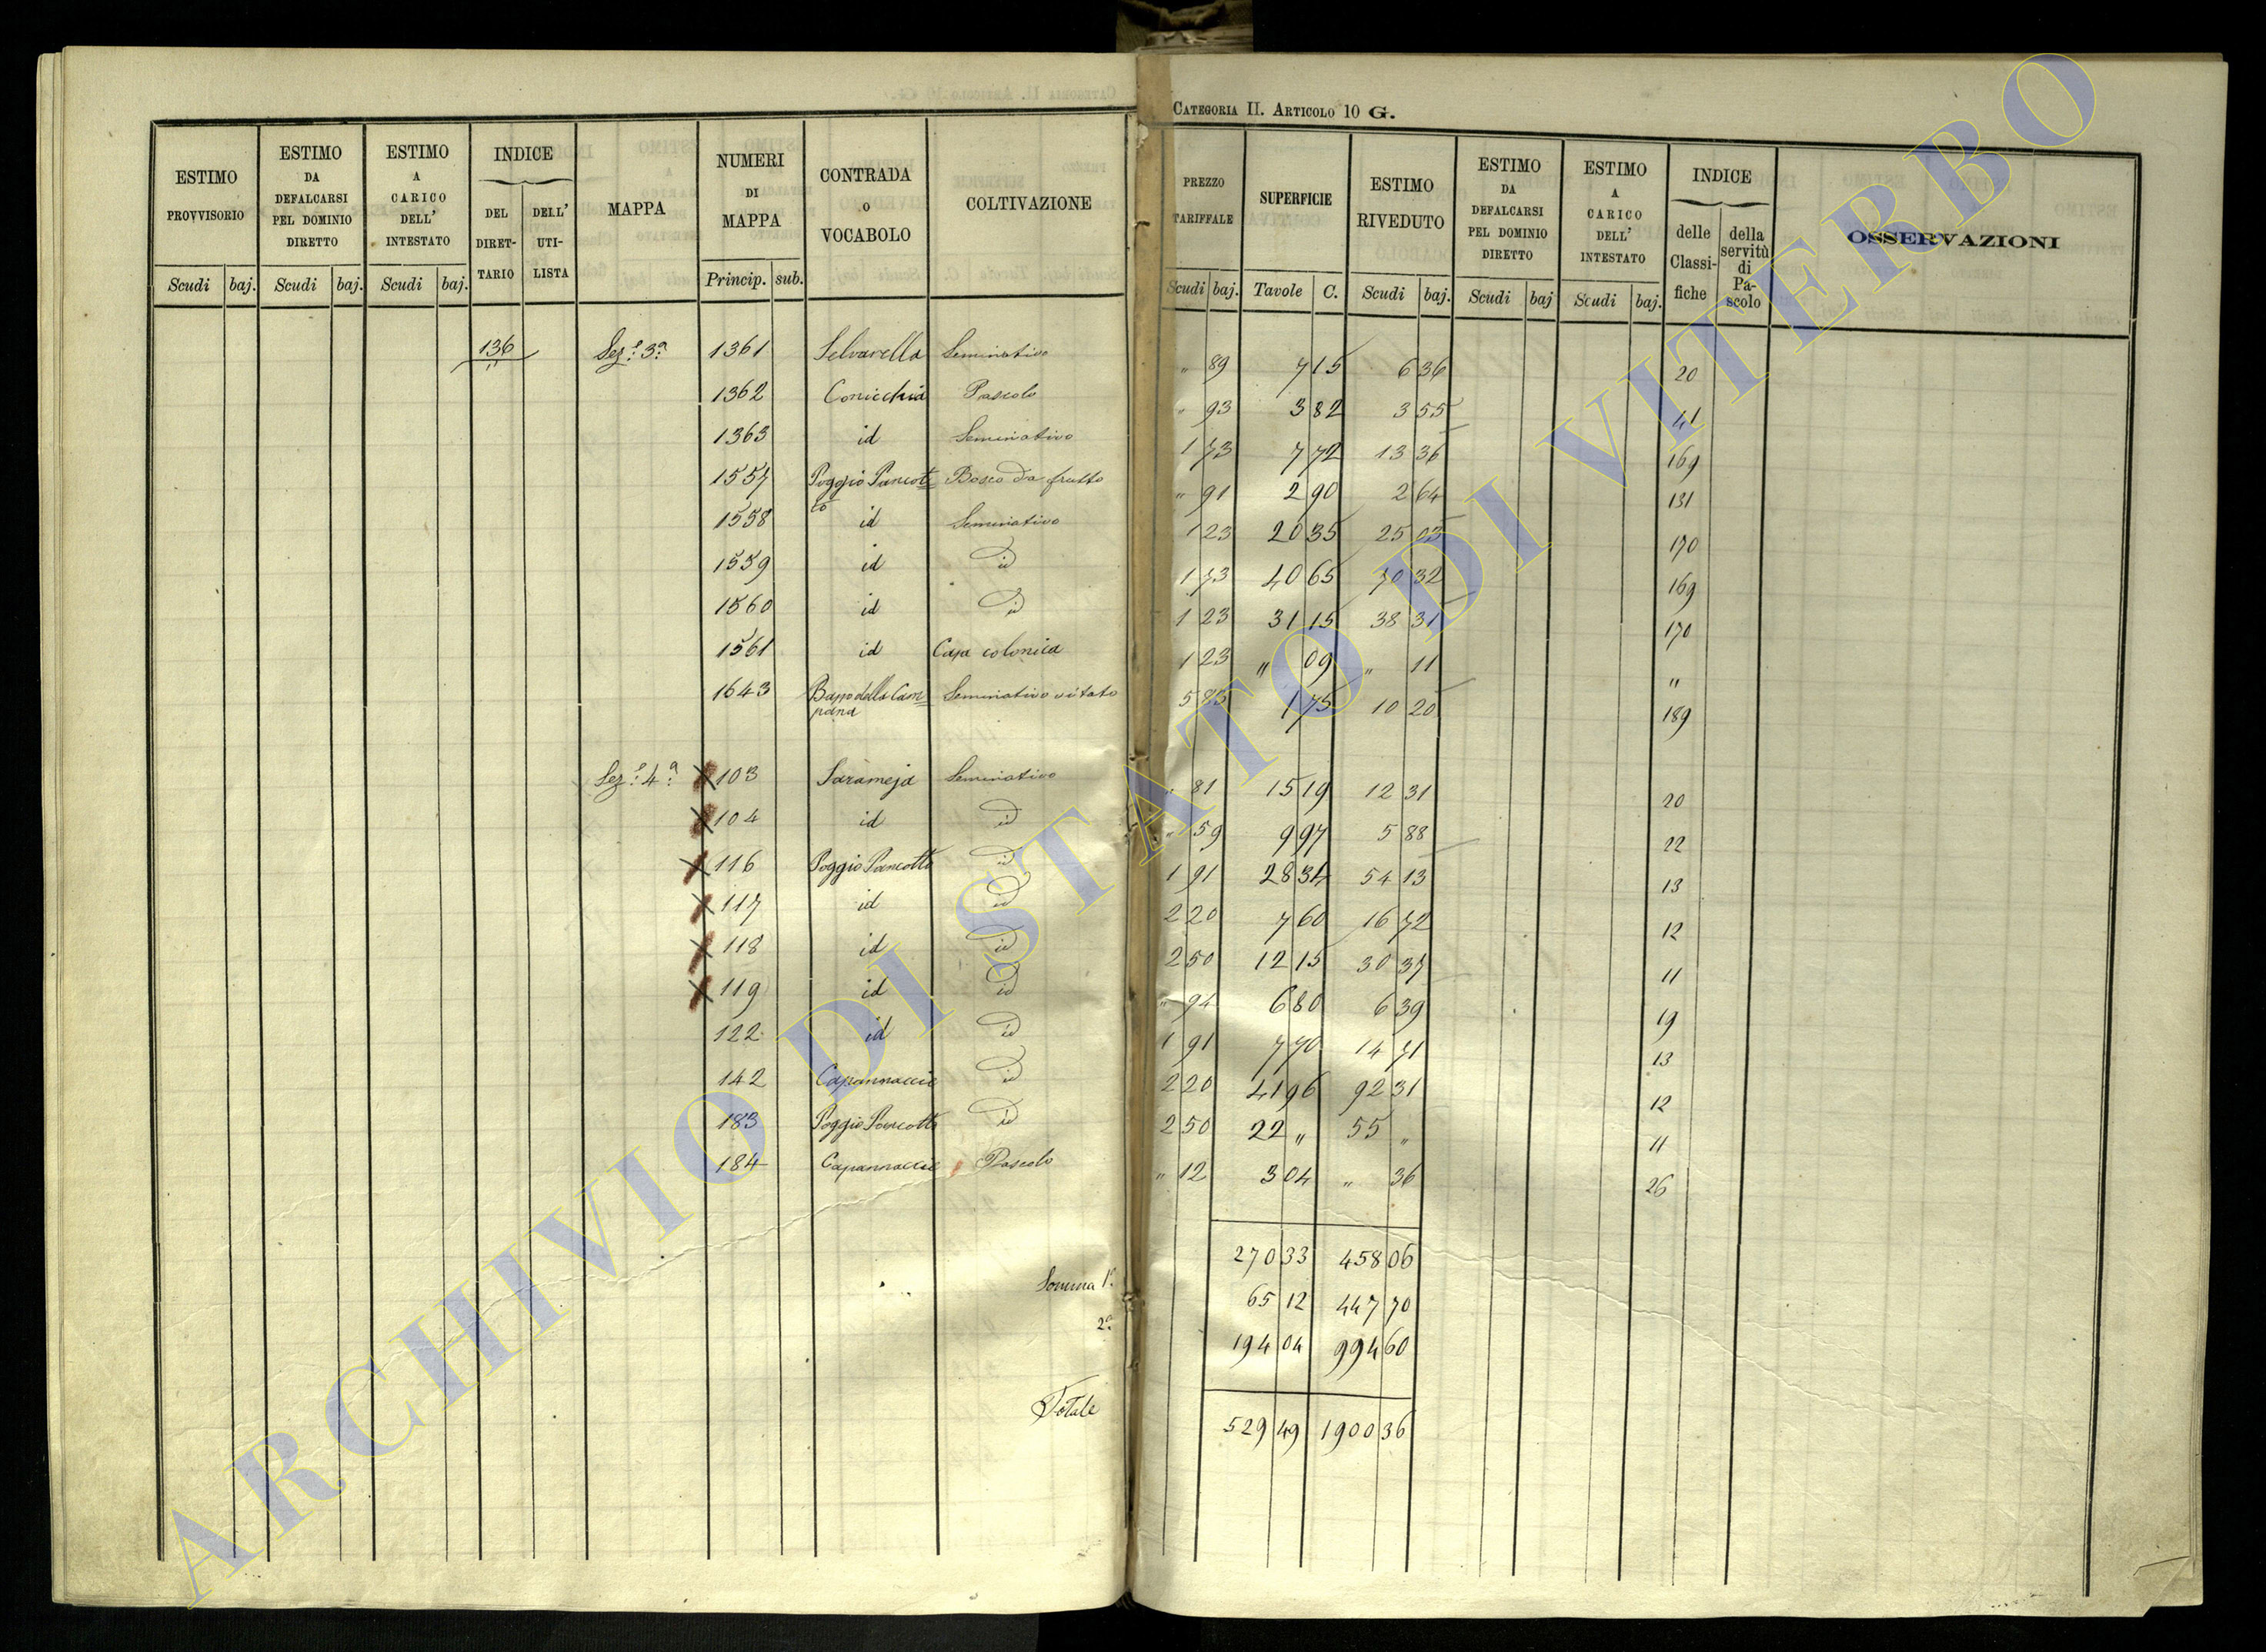 CATEGORIA II. ARTICOLO 10 G.
ESTIMO PROVVISORIO | ESTIMO DA DEFALCARSI PEL DOMINIO DIRETTO | ESTIMO A CARICO DELL' INTESTATO | INDICE | MAPPA | NUMERI DI MAPPA | CONTRADA O VOCABOLO | COLTIVAZIONE | PREZZO TARIFFALE | SUPERFICIE | ESTIMO RIVEDUTO | ESTIMO DA DEFALCARSI PEL DOMINIO DIRETTO | ESTIMO A CARICO DELL' INTESTATO | INDICE | OSSERVAZIONI
DEL DIRETTARIO | DELL' UTILISTA | delle Classifiche | della servitù di Pascolo
Scudi | baj. | Scudi | baj. | Scudi | baj. | Princip. | sub. | Scudi | baj. | Tavole | C. | Scudi | baj. | Scudi | baj | Scudi | baj.
136 | Sez.e 3.a | 1361 | Selvarella | Seminativo | " 89 | 7 15 | 6 36 | 20
1362 | Conicchia | Pascolo | " 93 | 3 82 | 3 55 | 41
1363 | id | Seminativo | 1 73 | 7 72 | 13 36 | 169
1557 | Poggio Pancotto | Bosco da frutto | " 91 | 2 90 | 2 64 | 131
1558 | id | Seminativo | 1 23 | 20 35 | 25 03 | 170
1559 | id | id | 1 73 | 40 65 | 70 32 | 169
1560 | id | id | 1 23 | 31 15 | 38 31 | 170
1561 | id | Casa colonica | 1 23 | " 09 | " 11 | "
1643 | della Campana | Seminativo vitato | 5 83 | 1 75 | 10 20 | 189
Sez.e 4.a | 103 | Sarameja | Seminativo | " 81 | 15 19 | 12 31 | 20
104 | id | id | " 59 | 9 97 | 5 88 | 22
116 | Poggio Pancotto | id | 1 91 | 28 34 | 54 13 | 13
117 | id | id | 2 20 | 7 60 | 16 72 | 12
118 | id | id | 2 50 | 12 15 | 30 37 | 11
119 | id | id | " 94 | 6 80 | 6 39 | 19
122 | id | id | 1 91 | 7 70 | 14 71 | 13
142 | Capannaccie | id | 2 20 | 41 96 | 92 31 | 12
183 | Poggio Pancotto | id | 2 50 | 22 " | 55 " | 11
184 | Capannaccie | Pascolo | " 12 | 3 04 | " 36 | 26
270 33 | 458 06
Somma 1.a | 65 12 | 447 70
2.a | 194 04 | 994 60
Totale | 529 49 | 1900 36
ARCHIVIO DI STATO DI VITERBO